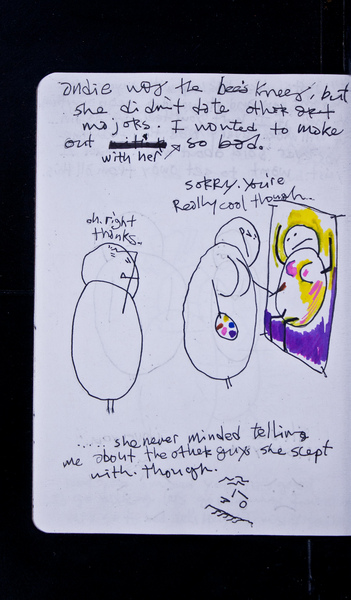 andie was the bee's knees, but
she didn't date other art
majors. I wanted to make
out so bad.
with her
sorry. You're
Really cool though...
oh. right
thanks..
..... she never minded telling
me about the other guys she slept
with. though.